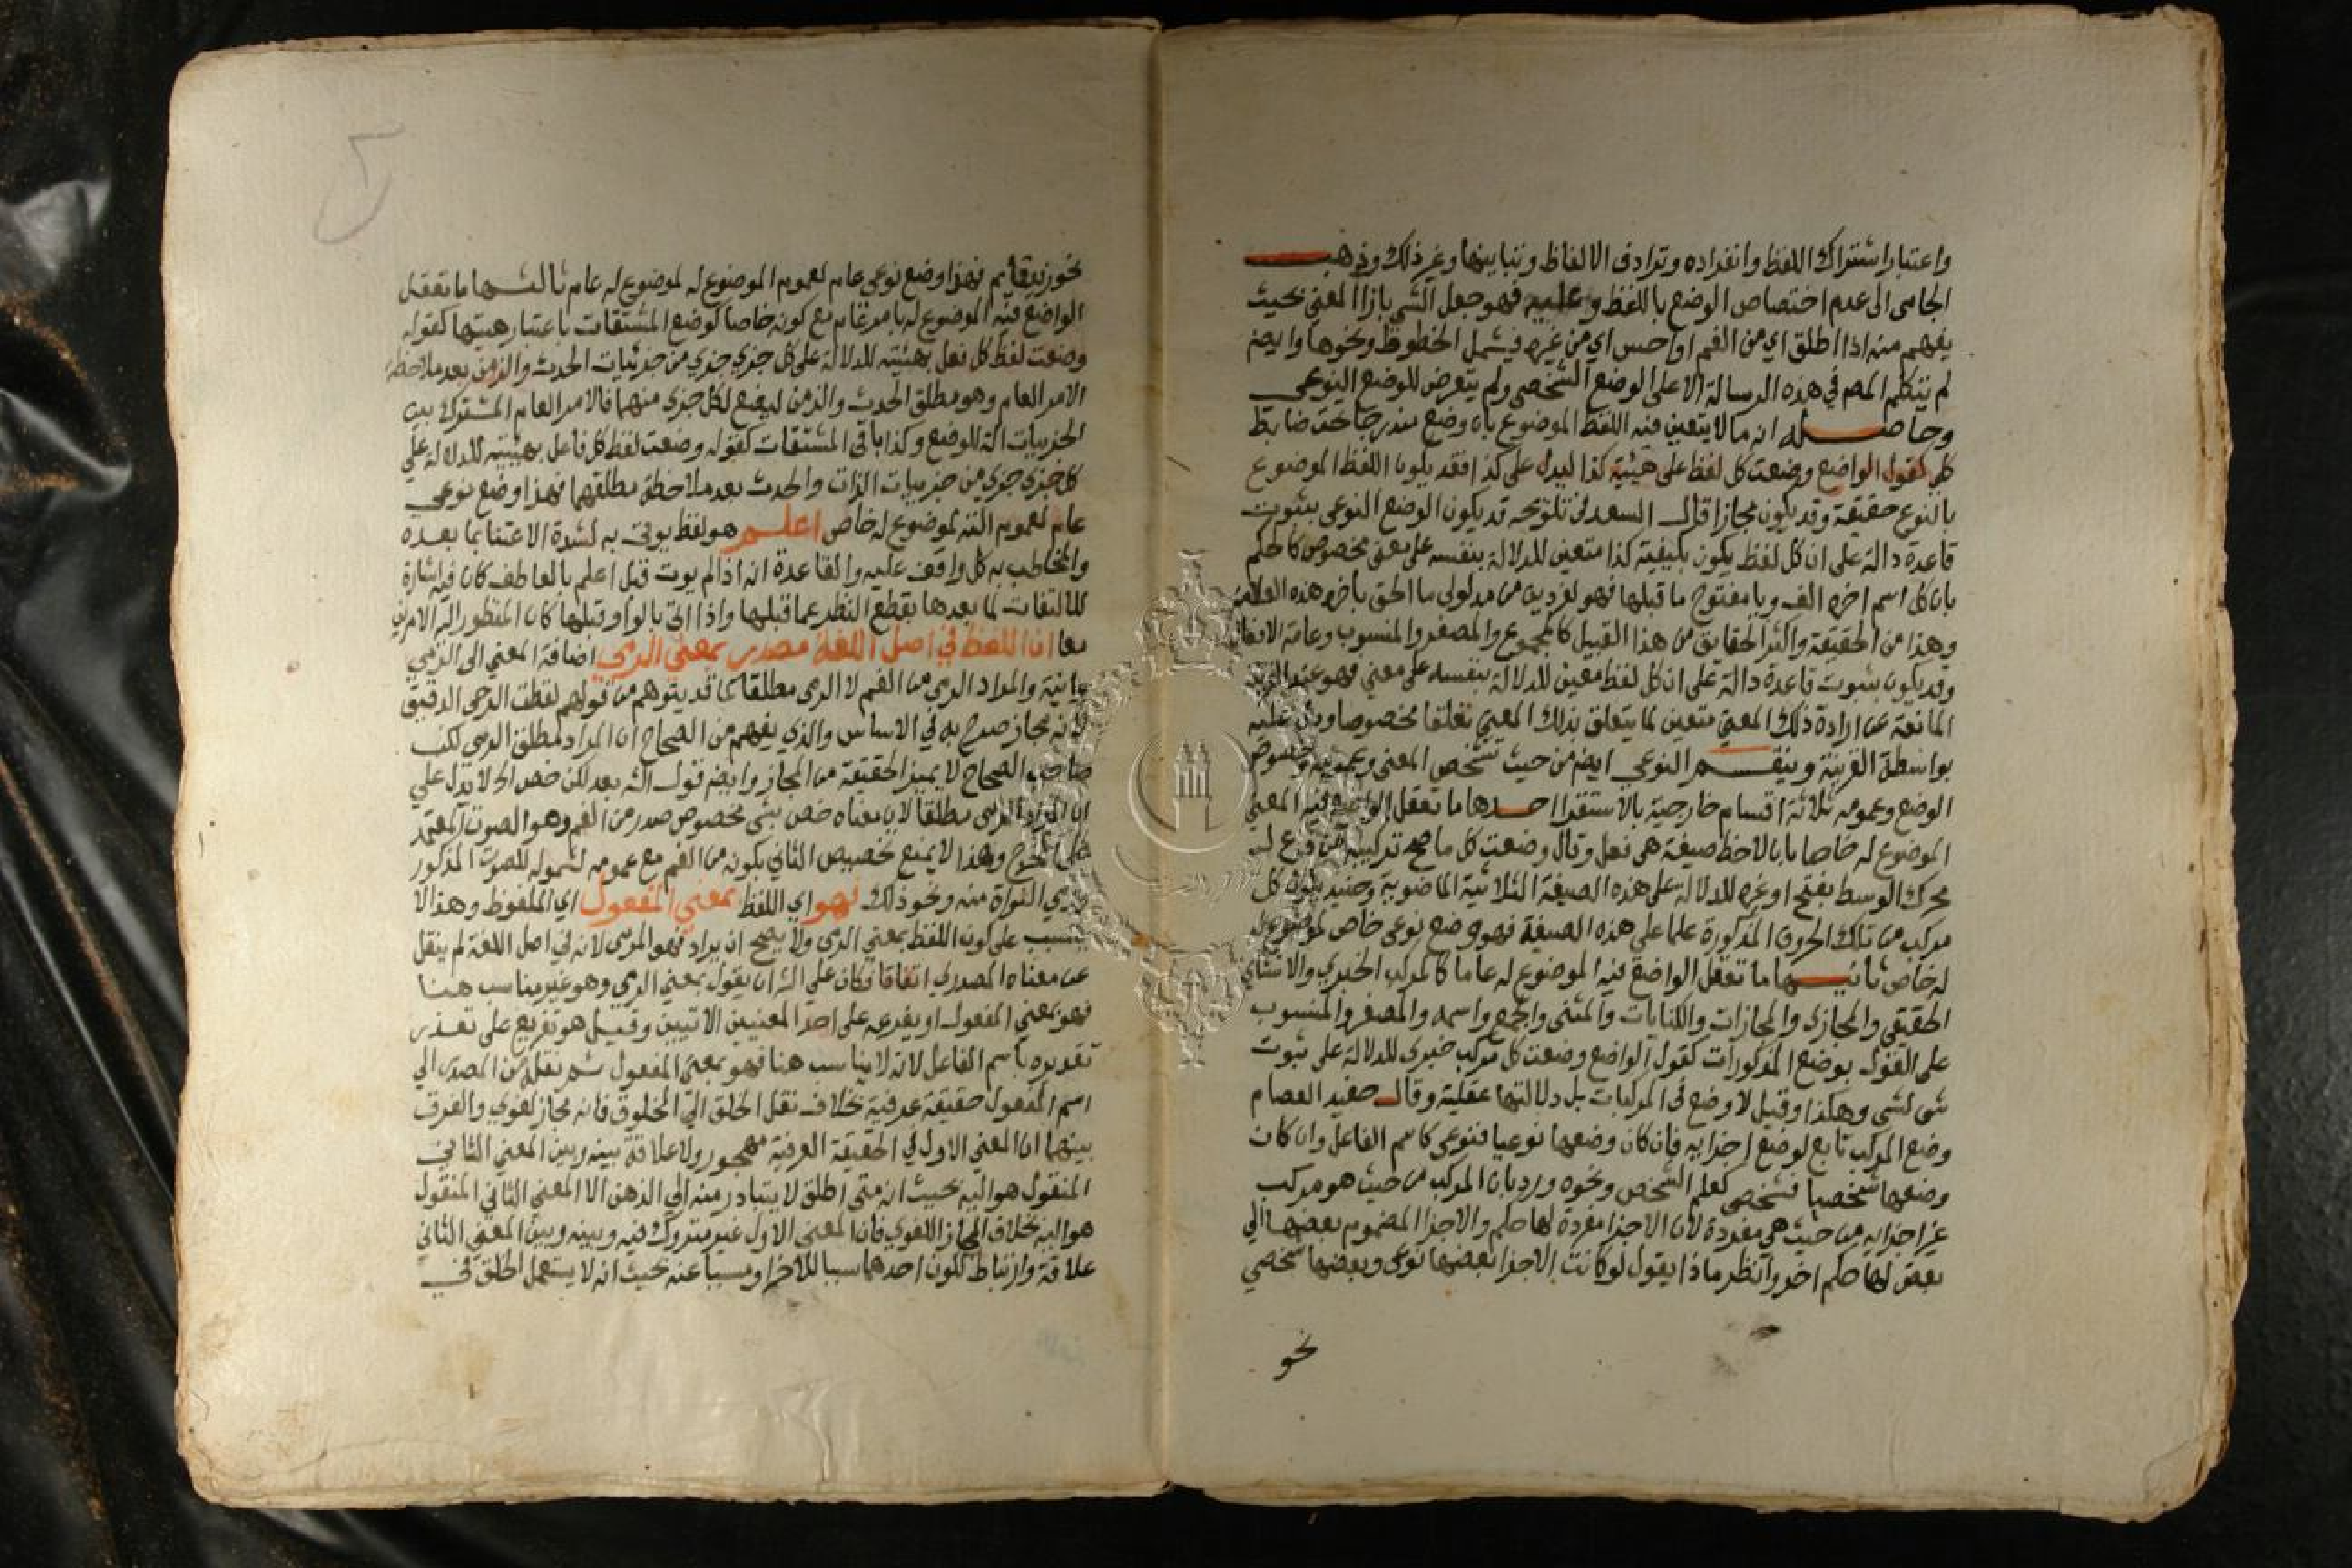 واعتبار اشتراك اللفظ وانفراده وترادف الالفاظ وتباينها وغير ذلك وذهب
الجامى الى عدم اختصاص الوضع باللفظ وعليه فهو جعل الشى بازا المعنى بحيث
يفهم منه اذا اطلق اى من الفم او احس اي من غيره فيشمل الخطوط ونحوها وايضم
لم يتكلم المصم في هذه الرسالة الا على الوضع الشخصى ولم يتعرض للوضع النوعي
وحاصله انه ما لا يتعين فيه اللفظ الموضوع بان وضع مندرجا تحت ضابط
كلى كقول الواضع وضعت كل لفظ على هيئية كذا ليدل على كذا فقد يكون اللفظ الموضوع
بالنوع حقيقة وقد يكون مجازا قال السعد فى تلويحه قد يكون الوضع النوعى بثبوت
قاعدة دالة على ان كل لفظ يكون بكيفية كذا متعين للدلالة بنفسه على معنى مخصوص كالحكم
بان كل اسم اخره الف ويا مفتوح ما قبلها فهو لفردين من مدلولى ما الحق باخره هذه العلامة
وهذا من الحقيقة واكثر الحقايق من هذا القبيل كالمجموع والمصغر والمنسوب وعامة الافعال
وقد يكون بثبوت قاعدة دالة على ان كل لفظ معين للدلالة بنفسه على معنى فهو عند القرينة
المانعة عن ارادة ذلك المعنى متعين لما يتعلق بذلك المعنى تعلقا مخصوصا ودال عليه
بواسطة القرينة وينقسم النوعي ايضم من حيث تشخص المعنى وعمومه وخصوص
الوضع وعمومه ثلاثة اقسام خارجية بالاستقرا احدها ما تعقل الواضع فيه المعنى
الموضوع له خاصا بان لاحظ صيغة هى فعل وقال وضعت كل ما صح تركيبه من فرع ل
محرك الوسط بفتح او غيره للدلالة على هذه الصيغة الثلاثية الماضوية وحنيد يكون كل
مركب من تلك الحروف المذكورة علما على هذه الصيغة فهو وضع نوعى خاص لموضوع
له خاص ثانيها ما تعقل الواضع فيه الموضوع له عاما كالمركب الخبري والانشاي
الحقيقي والمجازى والمجازات والكنايات والمثنى والجمع واسمه والمصغر والمنسوب
على القول بوضع المذكورات كقول الواضع وضعت كل مركب خبرى للدلالة على ثبوت
شى لشى وهكذا وقيل لا وضع فى المركبات بل دلالتها عقلية وقال حفيد العصام
وضع المركب تابع لوضع اجزايه فان كان وضعها نوعيا فنوعى كاسم الفاعل وان كان
وضعها شخصيا فشخصى كعلم الشخص ونحوه ورد بان المركب من حيث هو مركب
غير اجزايه من حيث هي مفردة لان الاجزا مفردة لها حكم والاجزا المضموم بعضها الي
بعض لها حكم اخر وانظر ماذا يقول لو كانت الاجزا بعضها نوعى وبعضها شخصي
نحو
نحو زيد قايم فهذا وضع نوعى عام لعموم الموضوع له لموضوع له عام ثالثها ما تعقل
الواضع فيه الموضوع له بامر عام مع كونه خاصا كوضع المشتقات باعتبار هيتها كقوله
وضعت لفظ كل فعل بهئيته للدلالة على كل جزي جزي من جزئيات الحدث والزمن بعد ملاحظة
الامر العام وهو مطلق الحدث والزمن ليضع لكل جزى منهما فالامر العام المشترك بين
الجزييات الة للوضع وكذا باقى المشتقات كقوله وضعت لفظ كل فاعل بهيئته للدلالة على
كل جزى جزي من جزييات الذات والحدث بعد ملاحظة مطلقهما فهذا وضع نوعى
عام لعموم الته لموضوع له خاص اعلم هو لفظ يوتى به لشدة الاعتنا بما بعده
والمخاطب به كل واقف عليه والقاعدة انه اذا لم يوت قبل اعلم بالعاطف كان فيه اشارة
للالتفات لما بعدها بقطع النظر عما قبلها واذا اتى بالواو قبلها كان المنظور اليه الامرين
معا ان اللفظ في اصل اللغة مصدر بمعنى الرمي اضافة المعني الى الرمي
بيانية والمراد الرمى من الفم لا الرمى مطلقا كما قد يتوهم من قولهم لفظت الرحى الدقيق
لانه مجاز صرح به في الاساس والذي يفهم من الصحاح ان المراد مطلق الرمى لكن
صاحب الصحاح لا يميز الحقيقة من المجاز وايضم قول الش بعد لكن خص الخ لا يدل علي
ان المراد الرمى مطلقا لان معناه خص بشى مخصوص صدر من الفم وهو الصوت المعتمد
على المخرج وهذا لا يمنع تخصيص الثاني بكونه من الفم مع عمومه لشموله للصوت المذكور
ورمي النواة منه ونحو ذلك فهو اي اللفظ بمعني المفعول اي الملفوظ وهذا لا
يتسبب على كون اللفظ بمعني الرمى ولا يصح ان يراد فهو المرمى لانه في اصل اللغة لم ينقل
عن معناه المصدري اتفاقا فكان علي الش ان يقول بمعني الرمي وهو غير مناسب هنا
فهو بمعني المفعول او يفرعه على احد المعنيين الاتيين وقيل هو تفريع على تعذر
تقديره باسم الفاعل لانه لا يناسب هنا فهو بمعنى المفعول ثم نقله من المصدر الي
اسم المفعول حقيقة عرفية بخلاف نقل الخلق الى المخلوق فانه مجاز لغوي والفرق
بينهما ان المعني الاول في الحقيقة العرفية مهجور ولا علاقة بينه وبين المعني الثاني
المنقول هو اليه بحيث انه متى اطلق لا يتبادر منه الى الذهن الا المعني الثاني المنقول
هو اليه بخلاف المجاز اللغوي فان المعنى الاول غير متروك فيه وبينه وبين المعني الثاني
علاقة وارتباط لكون احدهما سببا للاخر او مسببا عنه بحيث انه لا يستعمل الخلق في